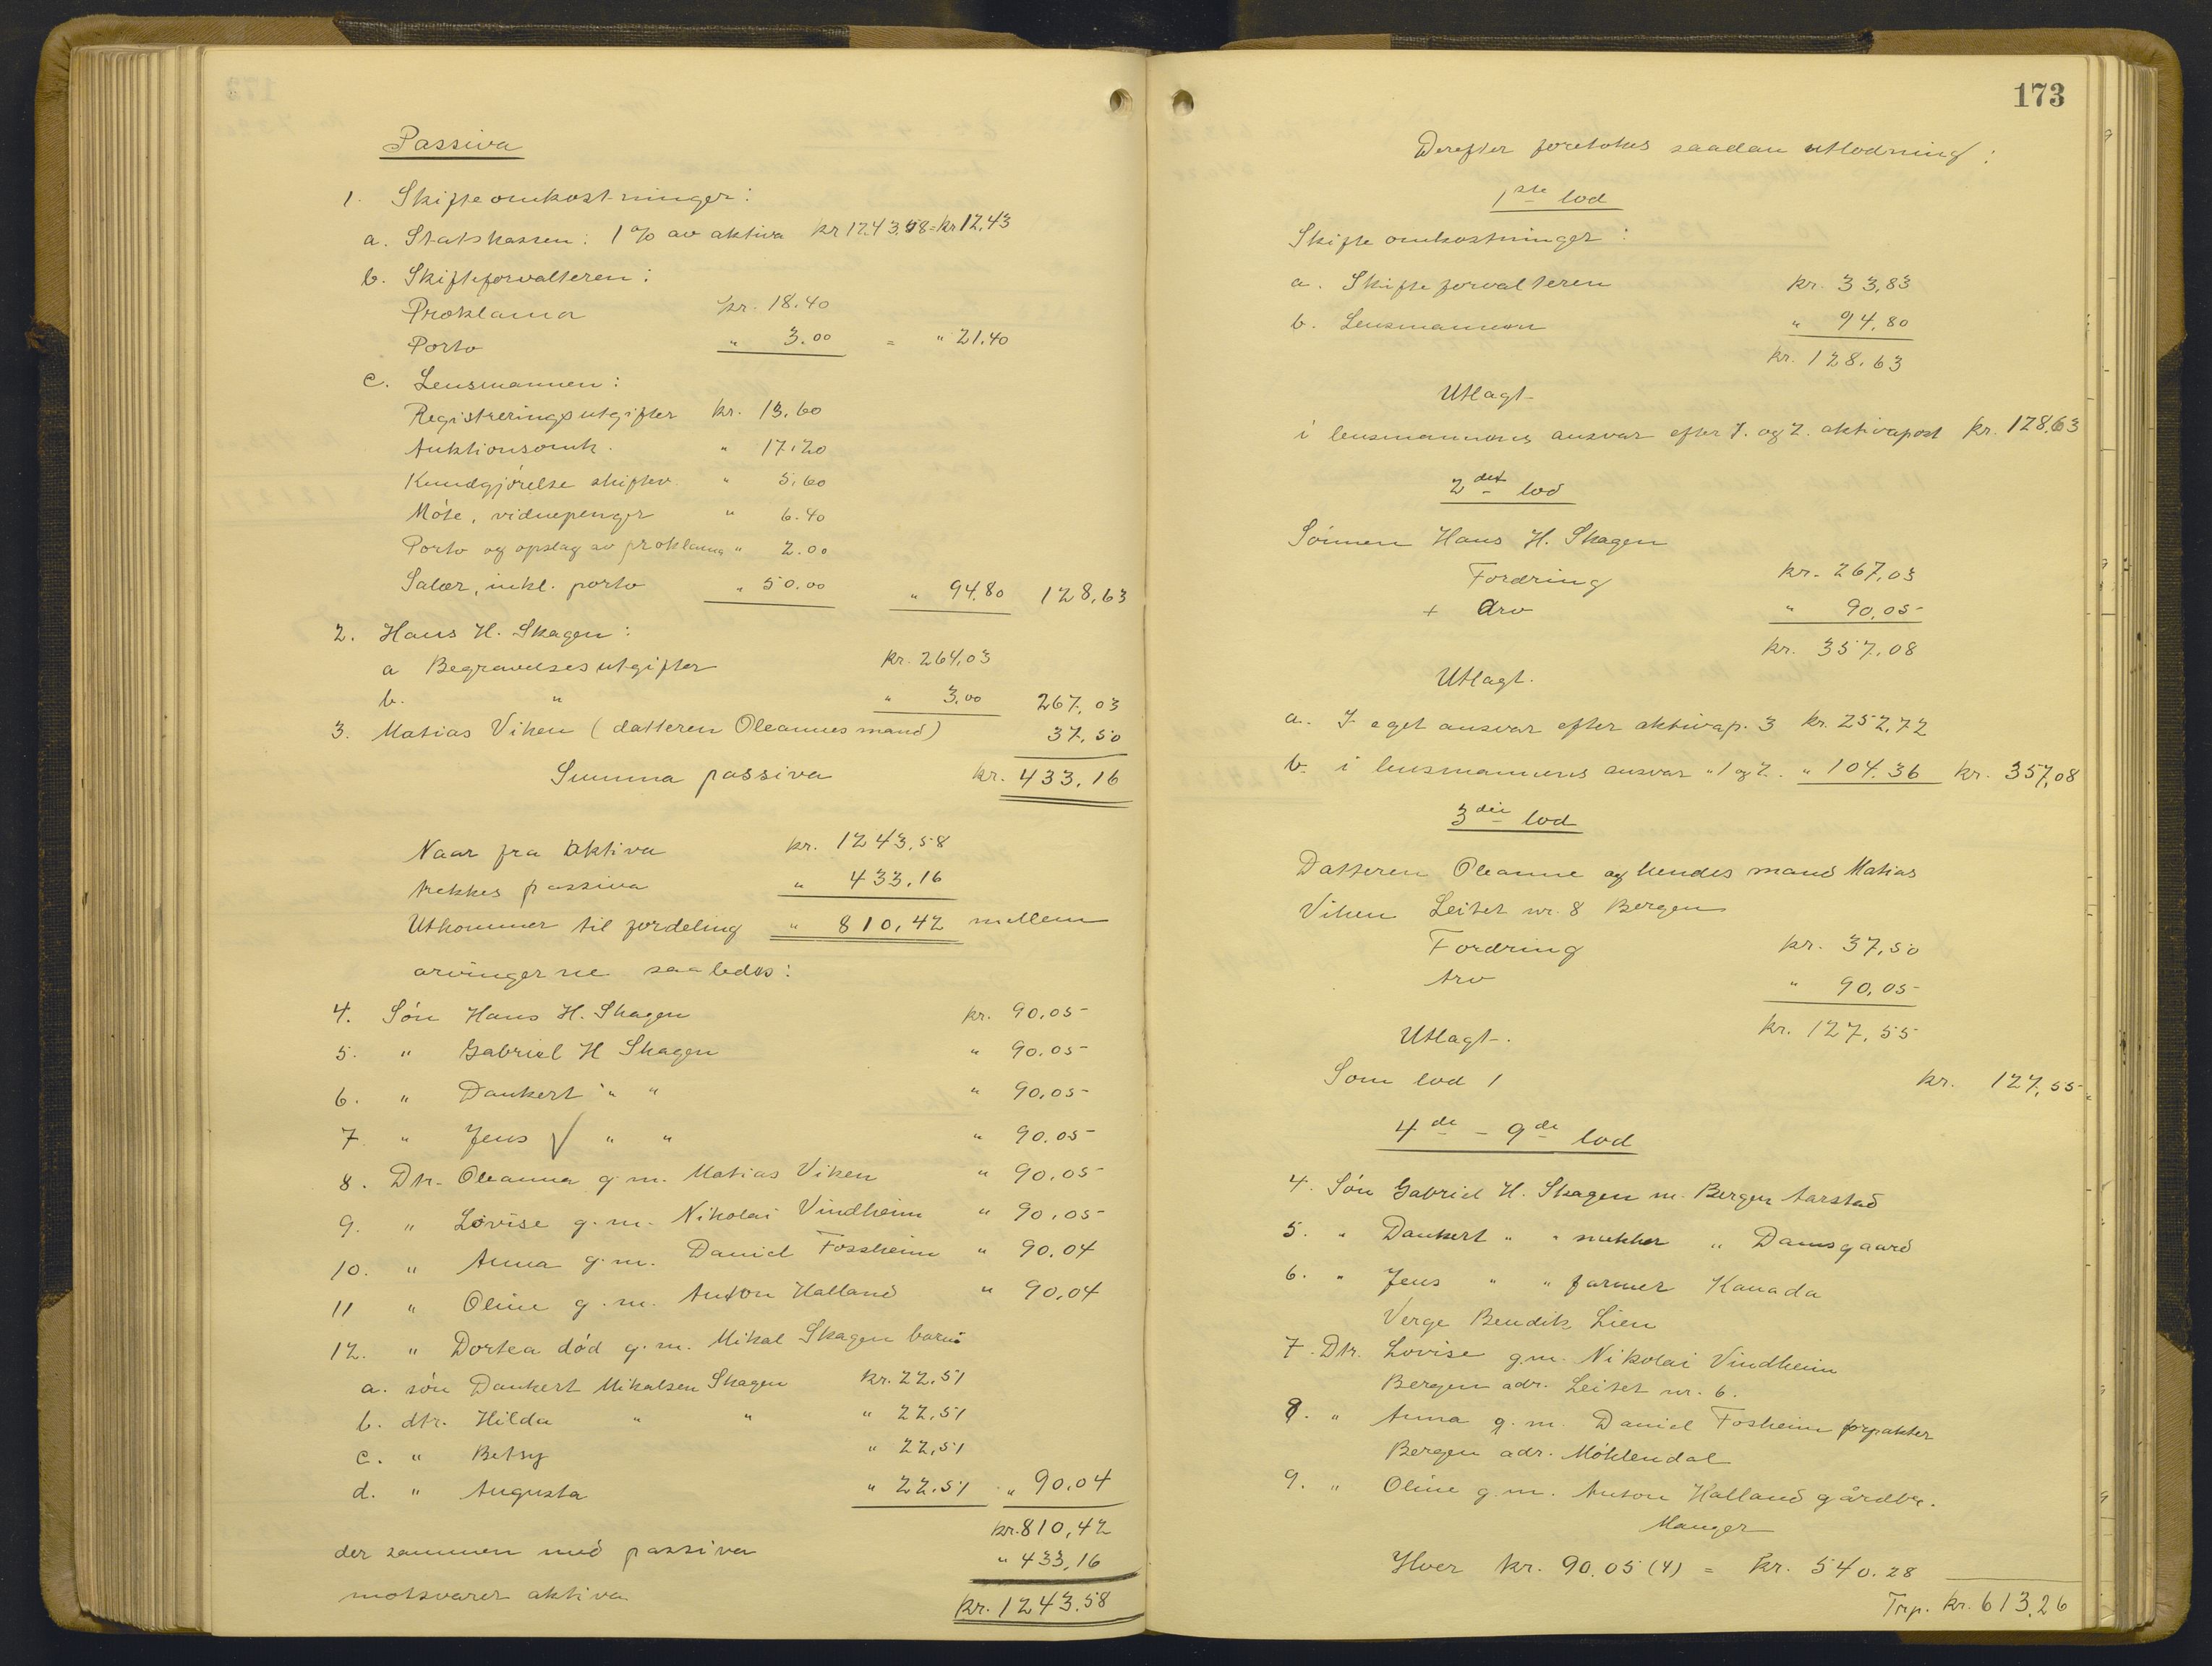 Passiva
1. Skifteomkostninger:
a. Statskassen: 1 % av aktiva kr 1243.58 = kr 12,43
b. Skifteforvalteren:
Proklama kr. 18.40
Porto " 3.00 = " 21.40
c. Lensmannen:
Registreringsutgifter kr. 13.60
Auktionsomk. " 17.20
Kundgjørelse skiftev. " 5.60
Møte, vidnepenger " 6.40
Porto og opslag av proklama " 2.00
Salær, inkl. porto " 50.00 " 94.80 128,63
2. Hans H. Skagen:
a Begravelsesutgifter kr. 264,03
b. " " 3,00 267,03
3. Matias Viken (datteren Oleannes mand) 37,50
Summa passiva kr. 433,16
Naar fra aktiva kr. 1243,58
trekkes passiva " 433.16
Utkommer til fordeling " 810,42 mellem
arvingerne saaledes:
4. Søn Hans H. Skagen kr. 90.05
5. " Gabriel H Skagen " 90.05
6. " Dankert " " " 90,05
7. " Jens √ " " " 90.05
8. Dtr. Oleanna g. m. Matias Viken " 90.05
9. " Lovise g. m. Nikolai Vindheim " 90.05
10. " Anna g. m. Daniel Fossheim " 90.04
11 " Oline g. m. Anton Halland " 90,04
12. " Dortea død g. m. Mikal Skagen barn:
a. søn Dankert Mikalsen Skagen kr. 22,51
b. dtr. Hilda " " " 22,51
c. " Betsy " 22,51
d. " Augusta " 22.51 " 90.04
kr. 810,42
der sammen med passiva " 433,16
motsvarer aktiva kr. 1243.58
173
Derefter foretokes saadan utlodning:
1ste lod
Skifteomkostninger:
a. Skifteforvalteren kr. 33,83
b. Lensmannen " 94,80
kr. 128.63
Utlagt
i lensmannens ansvar efter 1. og 2. aktivapost kr. 128,63
2det lod
Sønnen Hans H. Skagen
Fordring kr. 267,03
+ Arv " 90,05
kr. 357,08
Utlagt.
a. I eget ansvar efter aktivap. 3 kr. 252,72
b. i lensmannens ansvar " 1 og 2. " 104.36 kr. 357,08
3die lod
Datteren Oleanne og hendes mand Matias
Viken Leitet nr. 8 Bergen
Fordring kr. 37,50
Arv " 90,05
kr. 127,55
Utlagt.
Som lod 1 kr. 127,55
4de - 9de lod
4. Søn Gabriel H. Skagen m. Bergen Aarstad
5. " Dankert " " snekker " Damsgaard
6. " Jens " " farmer Kanada
Verge Bendik Lien
7. Dtr. Lovise g.m. Nikolai Vindheim
Bergen adr. Leitet nr. 6.
8. " Anna g. m. Daniel Fosheim forpakter
Bergen adr. Møhlendal
9. " Oline g. m. Anton Halland gårdbr.
Manger
Hver kr. 90.05 (4) = kr. 540.28
Trp. kr. 613.26